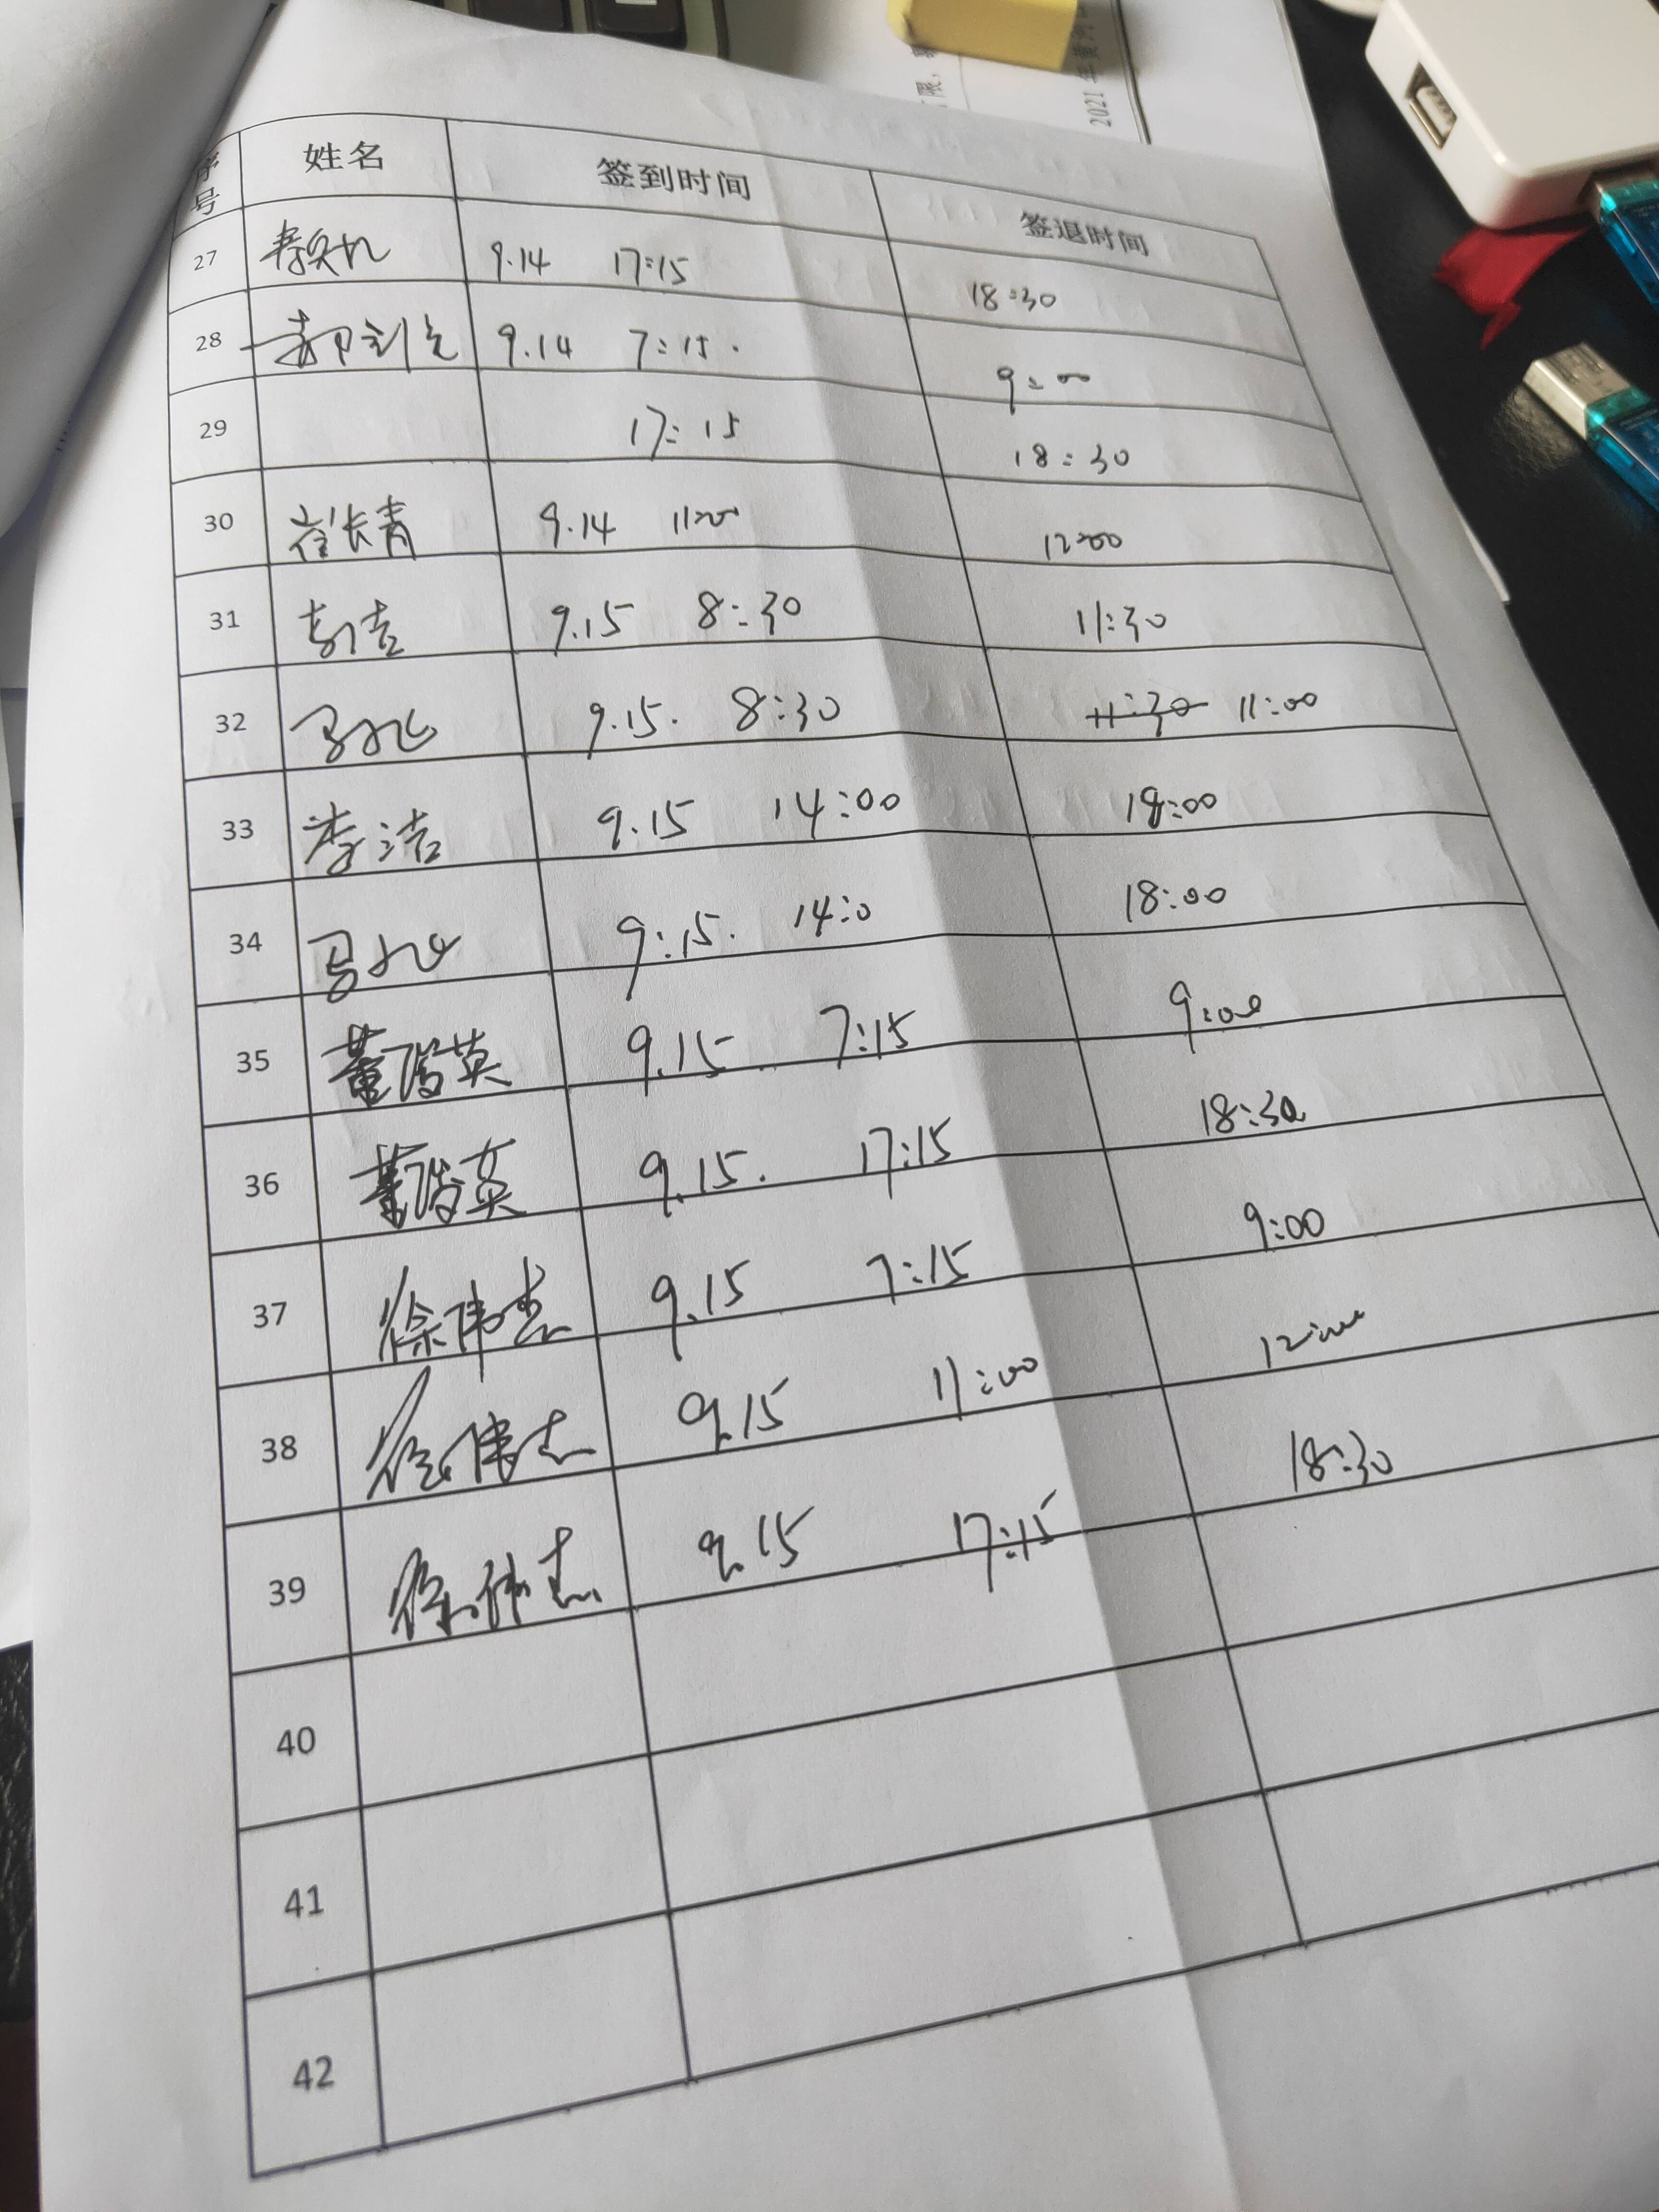 2021年黄河
序号 姓名 签到时间 签退时间
27 9.14 17:15 18:30
28 9.14 7:15. 9:00
29 17:15 18:30
30 崔长青 9.14 11:00 12:00
31 李洁 9.15 8:30 11:30
32 9.15. 8:30 11:30 11:00
33 李洁 9.15 14:00 18:00
34 9:15. 14:0 18:00
35 9.15 7:15 9:00
36 9.15. 17:15 18:30
37 徐伟志 9.15 7:15 9:00
38 徐伟志 9.15 11:00 12:00
39 徐伟志 9.15 17:15 18:30
40
41
42